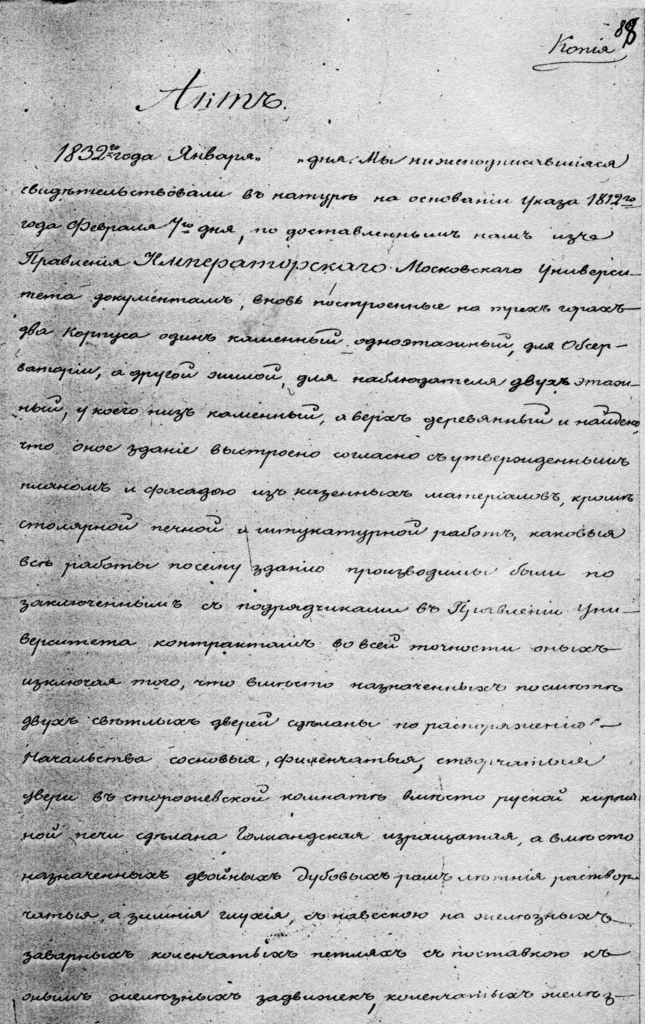 88
Копія
Актъ.
1832го года Января „ „ дня. Мы нижеподписавшіяся
свидѣтельствовали въ натурѣ на основаніи указа 1812го
года Февраля 7го дня, по доставленнымъ намъ изъ
Правленія Императорскаго Московскаго Универси-
тета документамъ, вновь построенные на трехъ горахъ
два корпуса одинъ каменный одноэтажный, для Обсер-
ваторіи, а другой жилой, для наблюдателя двухъ этаж-
ный, у коего низъ каменный, а верхъ деревянный и найдено,
что оное зданіе выстроено согласно съ утвержденнымъ
планомъ и фасадою изъ казенныхъ матеріаловъ, кромѣ
столярной печной и штукатурной работъ, каковыя
всѣ работы посему зданію производимы были по
заключеннымъ съ подрядчиками въ Правленіи Уни-
верситета контрактамъ во всей точности оныхъ
изключая того, что вмѣсто назначенныхъ по смѣтѣ
двухъ свѣтлыхъ дверей сдѣланы по распоряженію
Начальства сосновыя, филенчатыя, створчатыя
двери въ сторожевской комнатѣ вмѣсто руской кирпи-
ной печи сдѣлана Голландская изращатая, а вмѣсто
назначенныхъ двойныхъ дубовыхъ рамъ лѣтнія раствор-
чатыя, а зимнія глухія, съ навескою на желѣзныхъ
заварныхъ коленчатыхъ петляхъ съ поставкою къ
онымъ желѣзныхъ задвижекъ, коленчатыхъ желѣз-